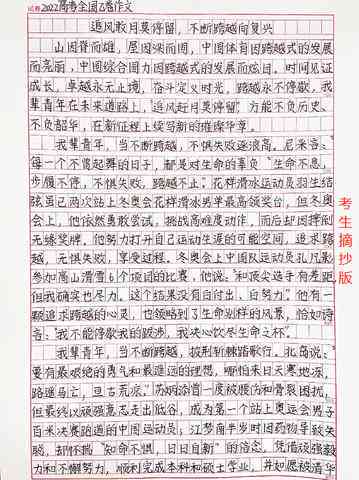 试卷 2022高考全国乙卷作文
追风敢月莫停留，不断跨越向复兴
山因脊而雄，屋因梁而固，中国体育因跨越式的发展
而亮丽，中国综合国力因跨越式的发展而炫目。时间见证
成长，卓越永无止境，奋斗定义时光，跨越永不停歇，我
辈青年在未来道路上，“追风赶月莫停留”方能不负历史、
不负韶华，在新征程上续写新的璀璨华章。
我辈青年，当不断跨越，不惧失败逐浪高。尼采言：
每一个不曾起舞的日子，都是对生命的辜负。”生命不息，
步履不停，不惧失败，跨越不止。花样滑冰运动员羽生结
弦虽已两次站上冬奥会花样滑冰男单最高领奖台，但冬奥
会上，他依然勇敢尝试，挑战高难度动作，而后却因摔倒
无缘奖牌。他努力打开自己运动生涯的可能空间，追求跨
越，无惧失败，享受过程。冬奥会上中国队运动员孔凡影
参加高山滑雪6个项目的比赛，他说：“和顶尖选手有差距，
但我确实也尽力。这个结果没有白付出、白努力。”他有一
颗追求跨越的心灵，也领略到了生命别样的风景，恰如诗
言：“我不能停歇我的跋涉，我决心饮尽生命之杯。”
我辈青年，当不断跨越，披荆斩棘踏歌行。北岛说：
要有最艰绝的勇气和最难迢的理想，哪怕来日天寒地冻，
路遥马亡，亘古荒凉。”苏炳添曾一度被腰伤和骨裂困扰，
但最终以顽强意志走出低谷，成为第一个站上奥运会男子
百米决赛跑道的中国运动员；江梦南半岁时因药物导致失
聪，却怀揣“知命不惧，日日自新”的信念，凭借顽强毅
力和不懈努力，顺利完成本科和硕士学业，并如愿被清华
考生摘抄版